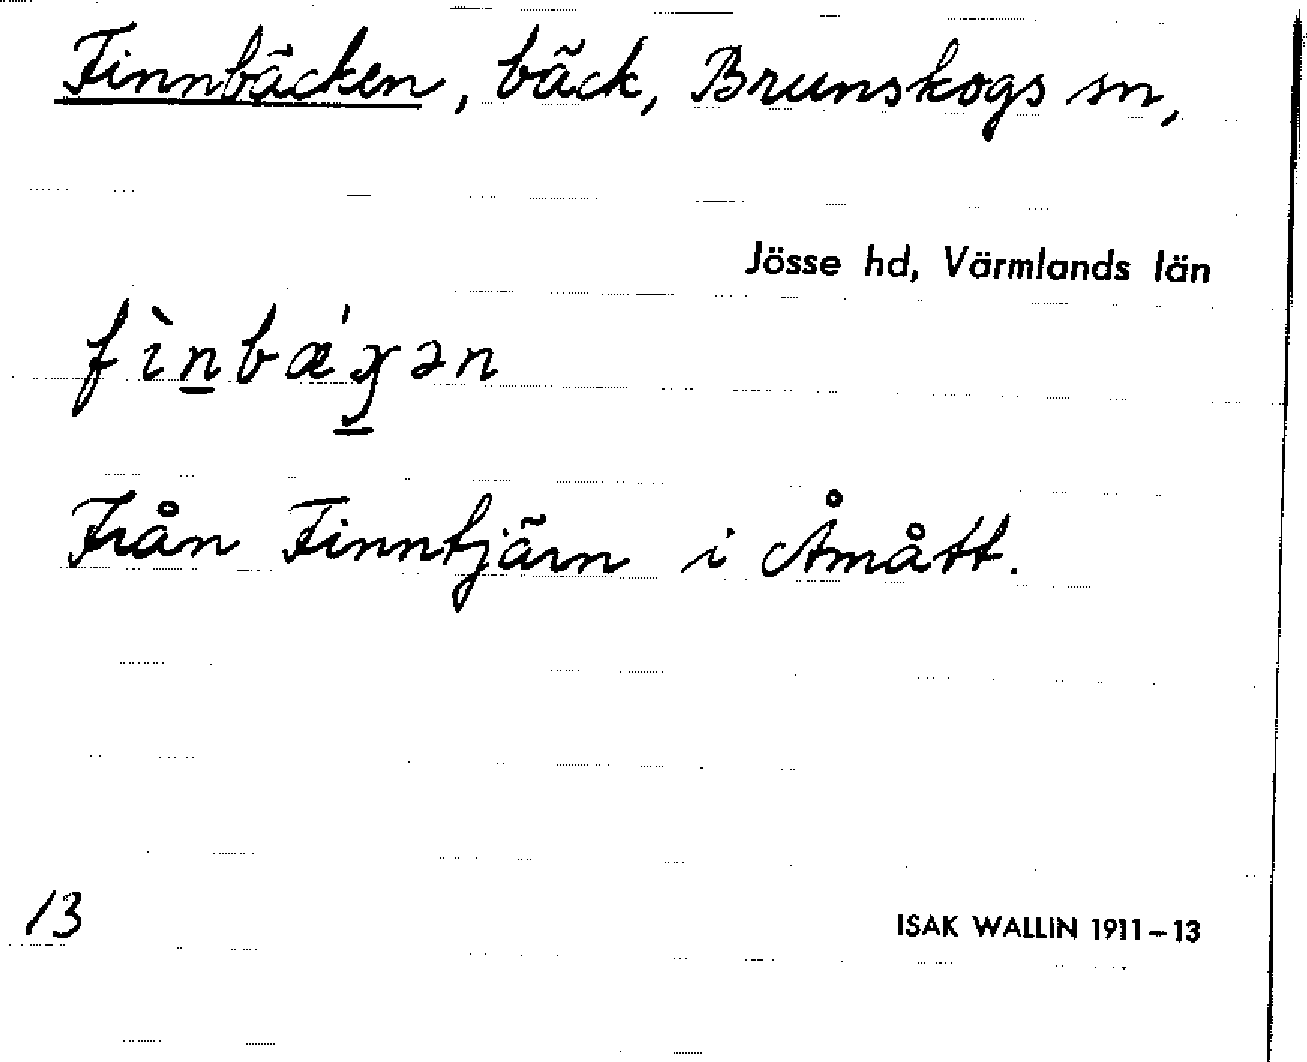 Finnbäcken, bäck, Brunskogs sn,
Jösse hd, Värmlands län
Från Finntjärn i Åmått.
13
ISAK WALLIN 1911–13